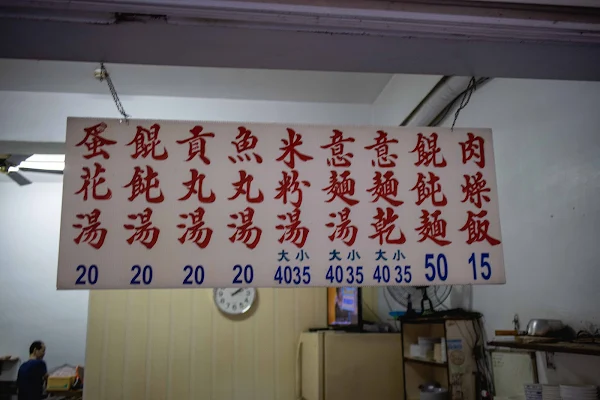 肉燥飯
15
餛飩麵
50
意麵乾
大小
40 35
意麵湯
大小
40 35
米粉湯
大小
40 35
魚丸湯
20
貢丸湯
20
餛飩湯
20
蛋花湯
20